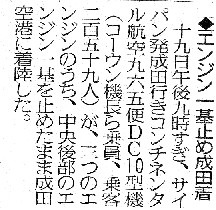 ◆エンジン一基止め成田着
十九日午後九時すぎ、サイ
パン発成田行きコンチネンタ
ル航空九六五便DC10型機
(コーウン機長ら乗員、乗客
二百五十九人)が、三つのエ
ンジンのうち、中央後部のエ
ンジン一基を止めたまま成田
空港に着陸した。